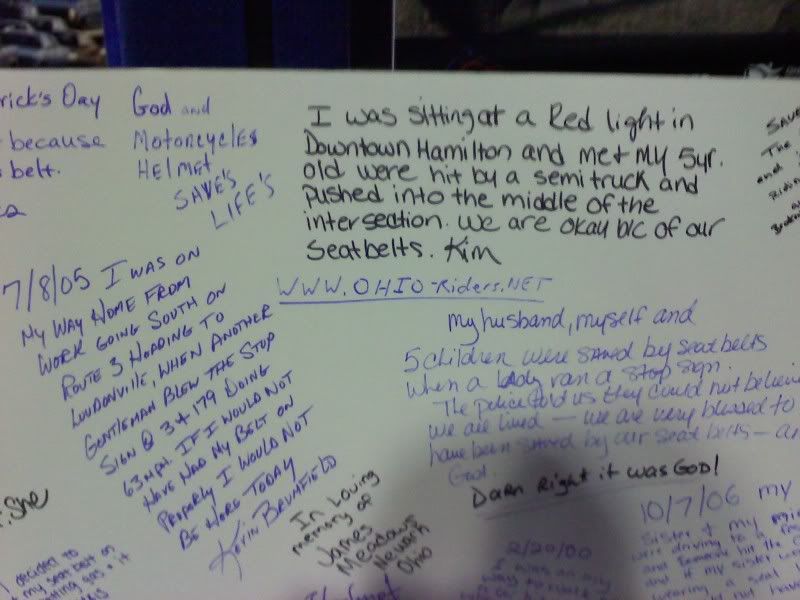 rick's Day
because
belt.
God and
Motorcycles
Helmet
SAVE'S
LIFE'S
I was sitting at a Red light in
Downtown Hamilton and met my 5yr.
old were hit by a semi truck and
pushed into the middle of the
intersection. We are okay b/c of our
Seatbelts. Kim
SAVE
The
and
Riding
WWW.OHIO-Riders.NET
7/8/05 I WAS ON
MY WAY HOME FROM
WORK GOING SOUTH ON
ROUTE 3 HEADING TO
LOUDONVILLE, WHEN ANOTHER
GENTLEMAN BLEW THE STOP
SIGN @ 3 + 179 DOING
63 MPH. IF I WOULD NOT
HAVE HAD MY BELT ON
PROPERLY I WOULD NOT
BE HERE TODAY
KEVIN BRUMFIELD
my husband, myself and
5 children were saved by seatbelts
when a lady ran a stop sign.
The police told us they could not believe
we are lived — we are very blessed to
have been saved by our seat belts — an
God.
Darn Right it was GOD!
In Loving
memory of
James
Meadows
Newark
Ohio
She
decided to
my seat belt on
10/7/06 my
Sister & my
were driving to a
and someone hit the
and if my sister
wearing a seat
not have
2/20/00
I was on my
way to